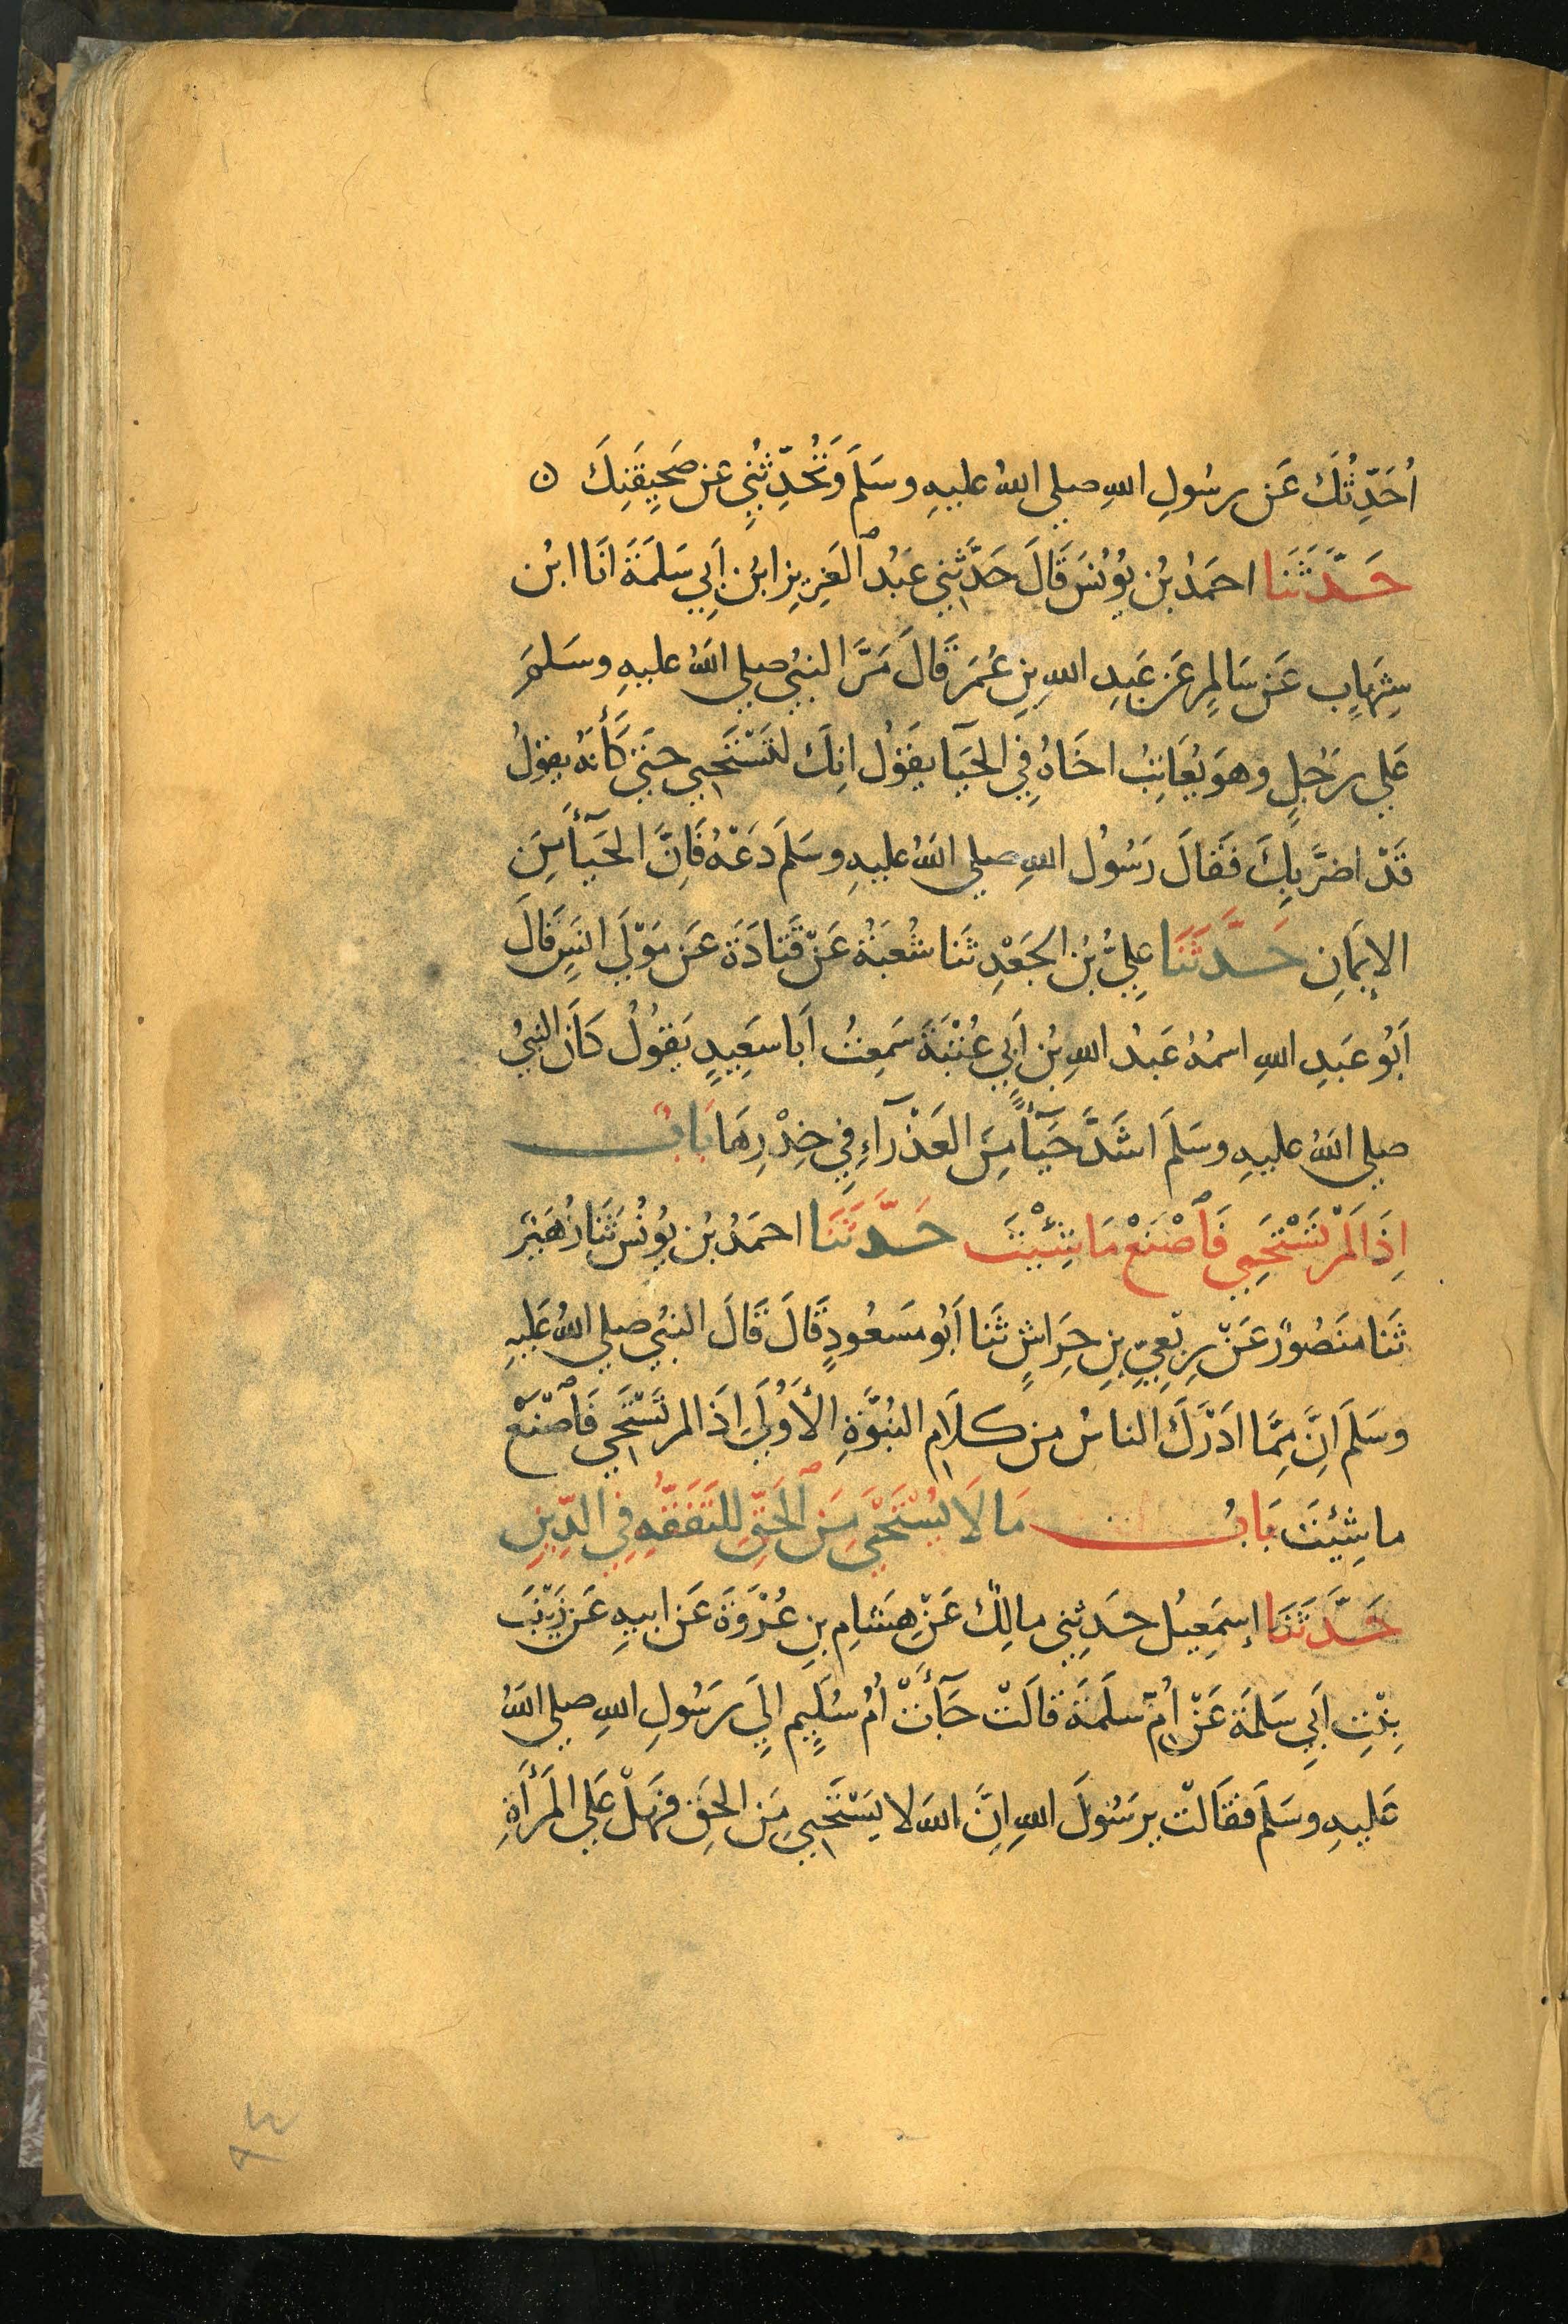 اُحَدِّثُكَ عَن رسُولِ اللهِ صلي اللهُ عليهِ وسَلَمَ وَتُحَدِّثُنِي عَن صَحِيفَتِكَ ه
حَدَّثَنَا احمَدُ بْن يُونُسَ قَالَ حَدَّثَنِي عَبْدُ ٱلعَزِيزِ ابْن أَبِي سَلَمَةَ انَا ابْن
شِهَابٍ عَن سَالِمٍ عَن عَبدِ اللهِ بنِ عُمَرَ قَالَ مَرَّ النبيُ صلي اللهُ عليهِ وسَلمَ
عَلي رَجُلٍ وهوَ يُعَاتِبُ اخَاهُ فِي الحَيَآ يقَوُل انِكَ لتَسْتَحيِي حتَيَ كَأَنهُ يقوُلُ
قَدْ اضَرَّ بِكَ فَقَالَ رَسُوُل اللهِ صلي اللهُ عليهِ وسَلمَ دَعْهُ فَاِنَّ الحَيَآَ مِنَ
الإيمَانِ حَدَّثَنَا عِليُّ بْن الجَعْدِ ثَنا شُعبَةُ عَنْ قَتَادَةَ عَن مَوْلَي انَسٍ قَالَ
أبُو عَبدِ اللهِ اسمُهُ عَبْدُ اللهِ بْن أَبِي عُتْبَةَ سَمِعتُ اَبا سَعِيدٍ يَقوُلُ كَانَ النبيُ
صلي اللهُ عليهِ وسَلمَ اشَدَّ حَيَآءً مِنَ العَذْرَآءِ فِي خِدْرِهَا بَابٌ
اِذَا لَمْ تَسْتَحِيِ فَٱصْنَعْ مَا شِئْتَ حَدَّثَنَا احمَدُ بْن يُونُسَ ثَنَا زُهَيْر
ثَنَا منَصُورٌ عَنْ رِبْعِيِّ بنِ حِرَاشٍ ثَنا أَبُو مَسَعُودٍ قَالَ قَالَ النبيُ صلي اللهُ عَليهِ
وسَلَمَ اِنَّ مِمَّا ادَرَكَ الناسُ من كلَامِ النبُوَّةِ الأُوْلَي اِذَا لمر تَسْتَحيِ فَٱصْنَعْ
ما شِئتَ بَابُ مَا لَا يُسْتَحْيَ مِنَ ٱلحَقِّ لِلتَفَقُّهِ فِي الدِّينِ
حَدَّثَنَا إسمَعِيُل حَدثِني مالِكٌ عَنْ هِشَامِ بنِ عُرْوَةَ عَن ابيهِ عَن زَيْنَبَ
بِنْتِ أَبِي سَلمَةَ عَنْ أُمِّ سلَمَةَ قالَتْ جَآءَتْ أُمُ سُلَيِم إلِيَ رَسُولِ اللهِ صلي اللهُ
عَليهِ وسَلمَ فقَالَتْ يرسُولَ اللهِ اِنَّ اللهَ لا يَسْتَحيِي مِنَ الحَقِ فهَلْ عَلي المَرْأَةِ